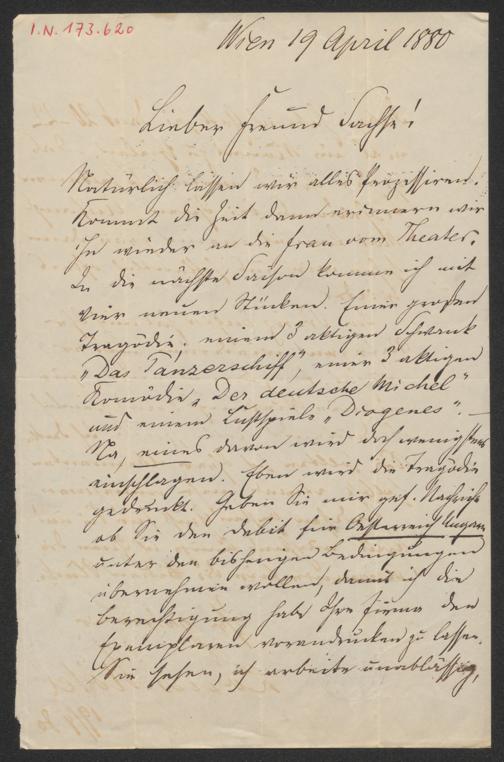 I.N. 173.620
Wien 19 April 1880
Lieber Freund Sachse!
Natürlich lassen wir alles
Kommt die Zeit dann erinnern wir
Sie wieder an die Frau vom Theater.
In die nächste Saison komme ich mit
vier neuen Stücken. Einer großen
Tragödie, einem 3 aktigen Schwank
„Das Panzerschiff", einer 3 aktigen
Komödie „Der deutsche Michel"
und einem Lustspiele „Diogenes". —
Na, eines davon wird doch wenigstens
einschlagen. Eben wird die Tragödie
gedruckt. Geben Sie mir gef. Nachricht
ob Sie den Debit für Oesterreich Ungarn
unter den bisherigen Bedingungen
übernehmen wollen, damit ich die
Berechtigung habe Ihre Firma den
Exemplaren vorandrucken zu lassen.
Sie sehen, ich arbeite unablässig,